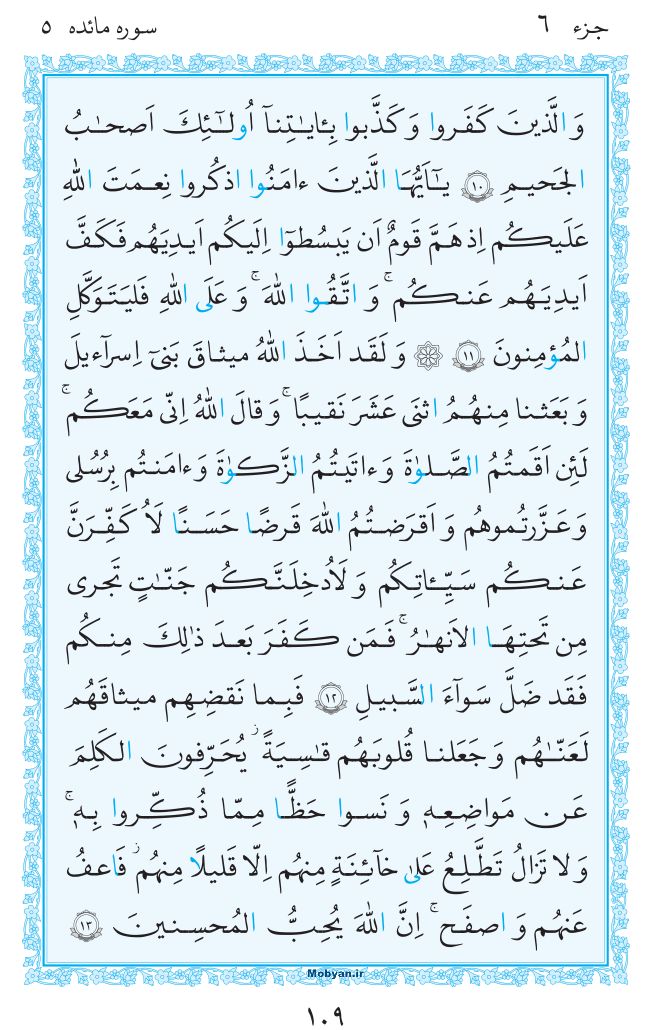 جزء ۶ سوره مائده ۵
وَالَّذينَ كَفَروا وَكَذَّبوا بِـٔايـٰتِنآ اُولـٰٓئِكَ اَصحـٰبُ
الجَحيمِ ﴿۱۰﴾ يـٰٓاَيُّهَا الَّذينَ ءامَنُوا اذكُروا نِعمَتَ اللهِ
عَلَيكُم اِذ هَمَّ قَومٌ اَن يَبسُطوٓا اِلَيكُم اَيدِيَهُم فَكَفَّ
اَيدِيَهُم عَنكُم ۚ وَ اتَّقُوا اللهَ ۚ وَ عَلَى اللهِ فَليَتَوَكَّلِ
المُؤمِنونَ ﴿۱۱﴾ ۞ وَ لَقَد اَخَذَ اللهُ ميثاقَ بَنىٓ اِسرآءيلَ
وَ بَعَثنا مِنهُمُ اثنَى عَشَرَ نَقيبًا ۚ وَ قالَ اللهُ اِنّى مَعَكُم ۚ
لَئِن اَقَمتُمُ الصَّلوٰةَ وَ ءاتَيتُمُ الزَّكوٰةَ وَ ءامَنتُم بِرُسُلى
وَ عَزَّرتُموهُم وَ اَقرَضتُمُ اللهَ قَرضًا حَسَنًا لَاُكَفِّرَنَّ
عَنكُم سَيِّـٔاتِكُم وَ لَاُدخِلَنَّكُم جَنّـٰتٍ تَجرى
مِن تَحتِهَا الاَنهـٰرُ ۚ فَمَن كَفَرَ بَعدَ ذٰلِكَ مِنكُم
فَقَد ضَلَّ سَوآءَ السَّبيلِ ﴿۱۲﴾ فَبِما نَقضِهِم ميثاقَهُم
لَعَنّـٰهُم وَ جَعَلنا قُلوبَهُم قـٰسِيَةً ۖ يُحَرِّفونَ الكَلِمَ
عَن مَواضِعِهٖ وَ نَسوا حَظًّا مِمّا ذُكِّروا بِهٖ ۚ
وَ لا تَزالُ تَطَّلِعُ عَلىٰ خآئِنَةٍ مِنهُم اِلّا قَليلًا مِنهُم ۖ فَاعفُ
عَنهُم وَ اصفَح ۚ اِنَّ اللهَ يُحِبُّ المُحسِنينَ ﴿۱۳﴾
Mobyan.ir
۱۰۹